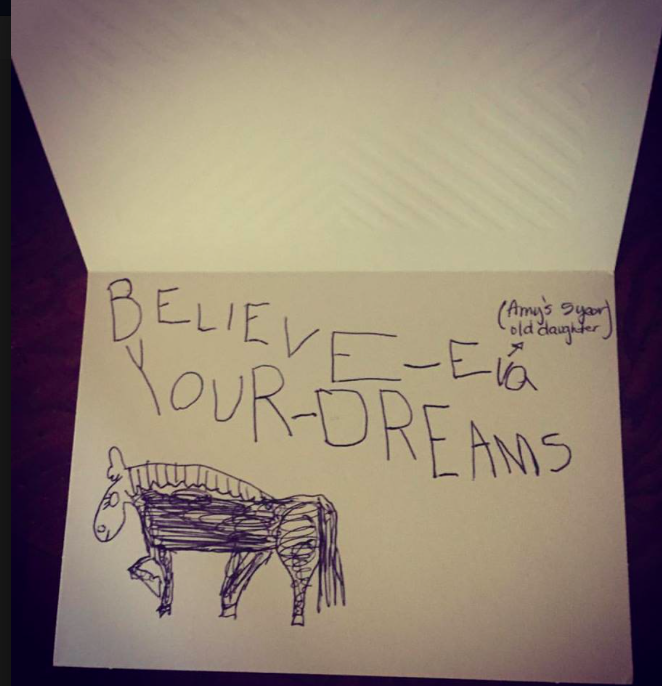 BELIEVE-Eva
(Amy's 5 year
old daughter)
YOUR-DREAMS